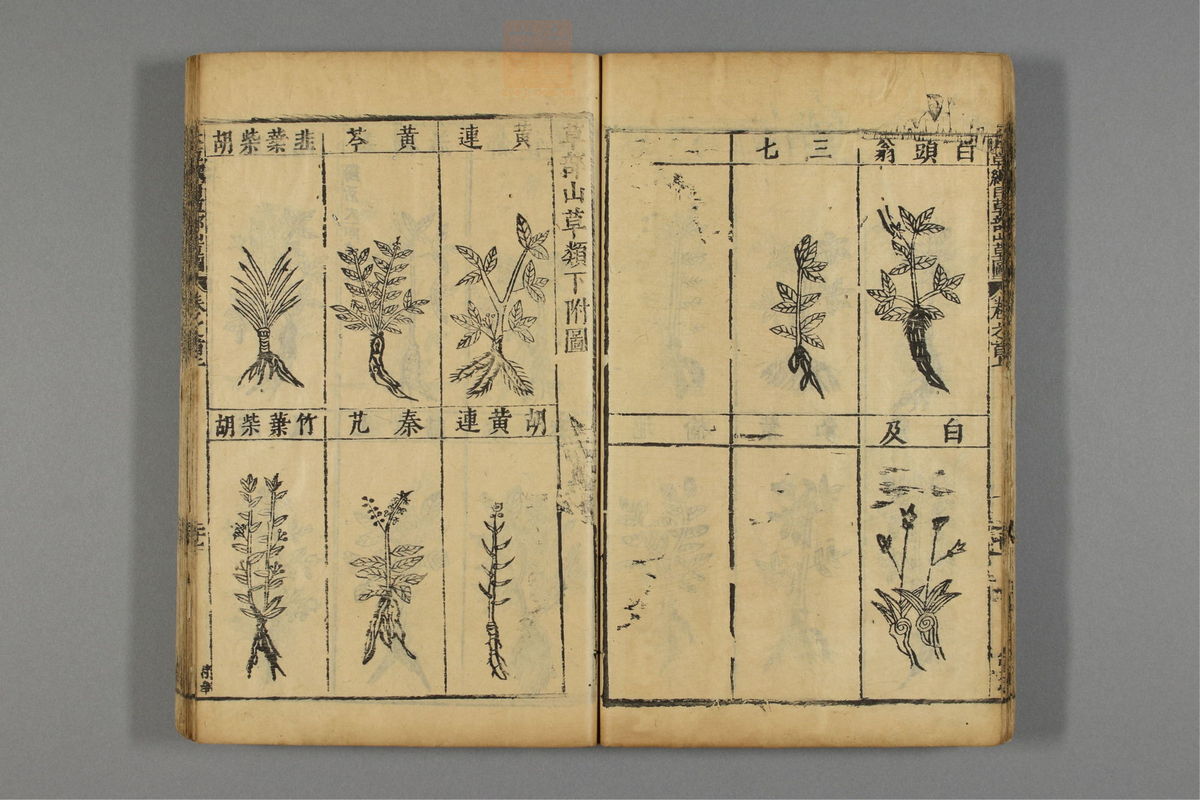 白頭翁
三七
白及
草部山草類下附圖
黃連
黃芩
韭葉柴胡
胡黃連
秦艽
竹葉柴胡